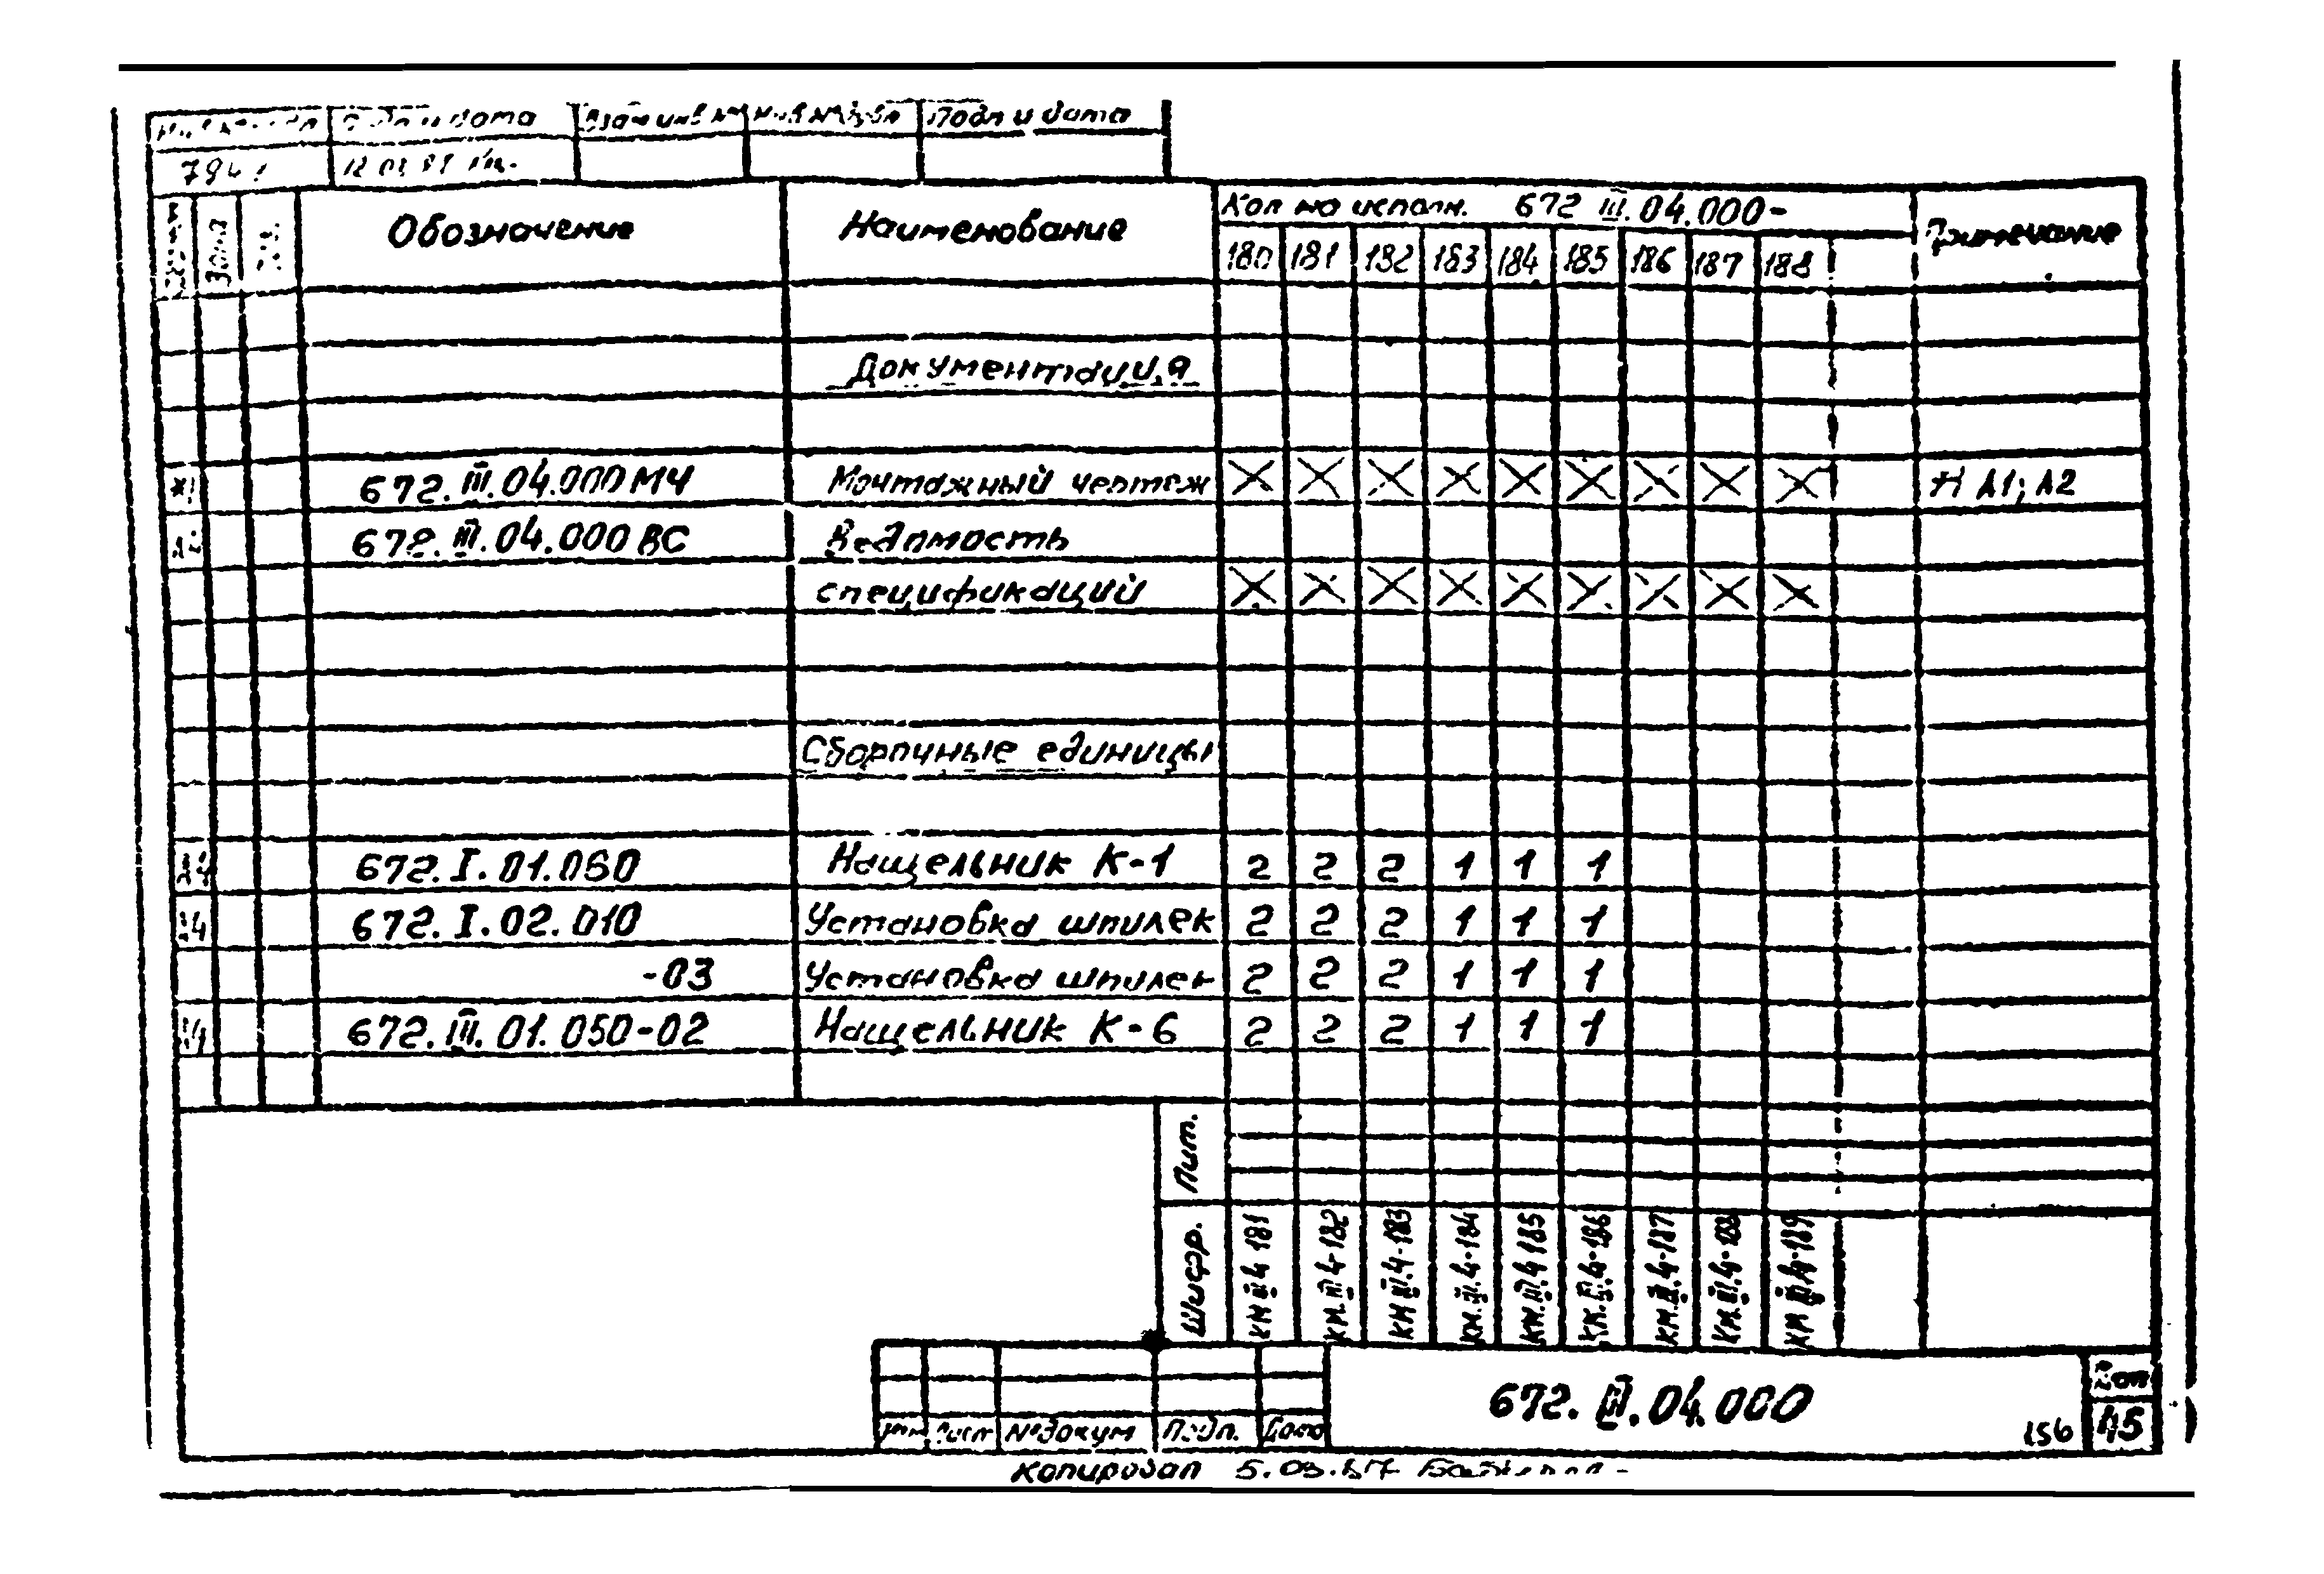 Подп и дата Взам инв № Инв № дубл Подп и дата
Зона Обозначение Наименование Кол на исполн. 672 III.04.000- Примечание
180 181 182 183 184 185 186 187 188
Документация
*) 672.III.04.000МЧ Монтажный чертеж X X X X X X X X X *) А1; А2
672.III.04.000 ВС Ведомость
спецификаций X X X X X X X X X
Сборочные единицы
672.I.01.060 Нащельник К-1 2 2 2 1 1 1
А4 672.I.02.010 Установка шпилек 2 2 2 1 1 1
-03 Установка шпилек 2 2 2 1 1 1
672.III.01.050-02 Нащельник К-6 2 2 2 1 1 1
Лит.
Шифр. КМ III.4 181 КМ.III.4-182 КМ III.4-183 КМ.III.4-184 КМ.III.4 185 КМ.III.4-186 КМ.III.4-187 КМ.III.4-188 КМ III.4-189
Изм Лист № докум Подп. Дата 672.III.04.000 156 Лист 115
Копировал 5.03.87